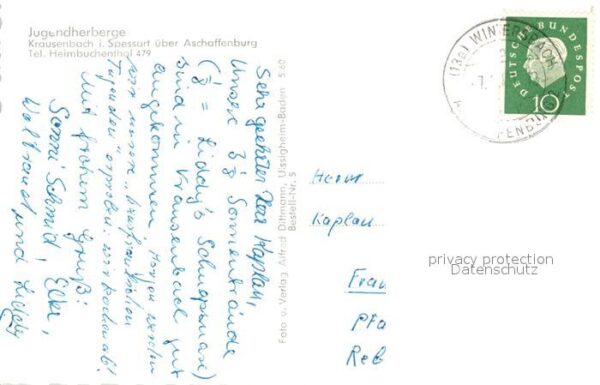 Jugendherberge
Krausenbach i. Spessart über Aschaffenburg
Tel. Heimbuchenthal 479
Sehr geehrter Herr Kaplan,
Unsere 3⅞ Sonnenkinder
(⅞ = Liddy's Schnupnase)
sind in Krausenbach gut
angekommen, Morgen werden
wir unsere
Tugenden erproben: wir kochen ab!
Mit frohem Gruß:
Sanni Schmid, Elke,
Waltraud und Liddy
Foto u. Verlag Alfred Dittmann, Uissigheim-Baden 5.60
Bestell-Nr. 5
DEUTSCHE BUNDESPOST
10
(13a) WINTERSBACH
Herrn
Kaplan
Fran
Pfa
Reb
privacy protection
Datenschutz